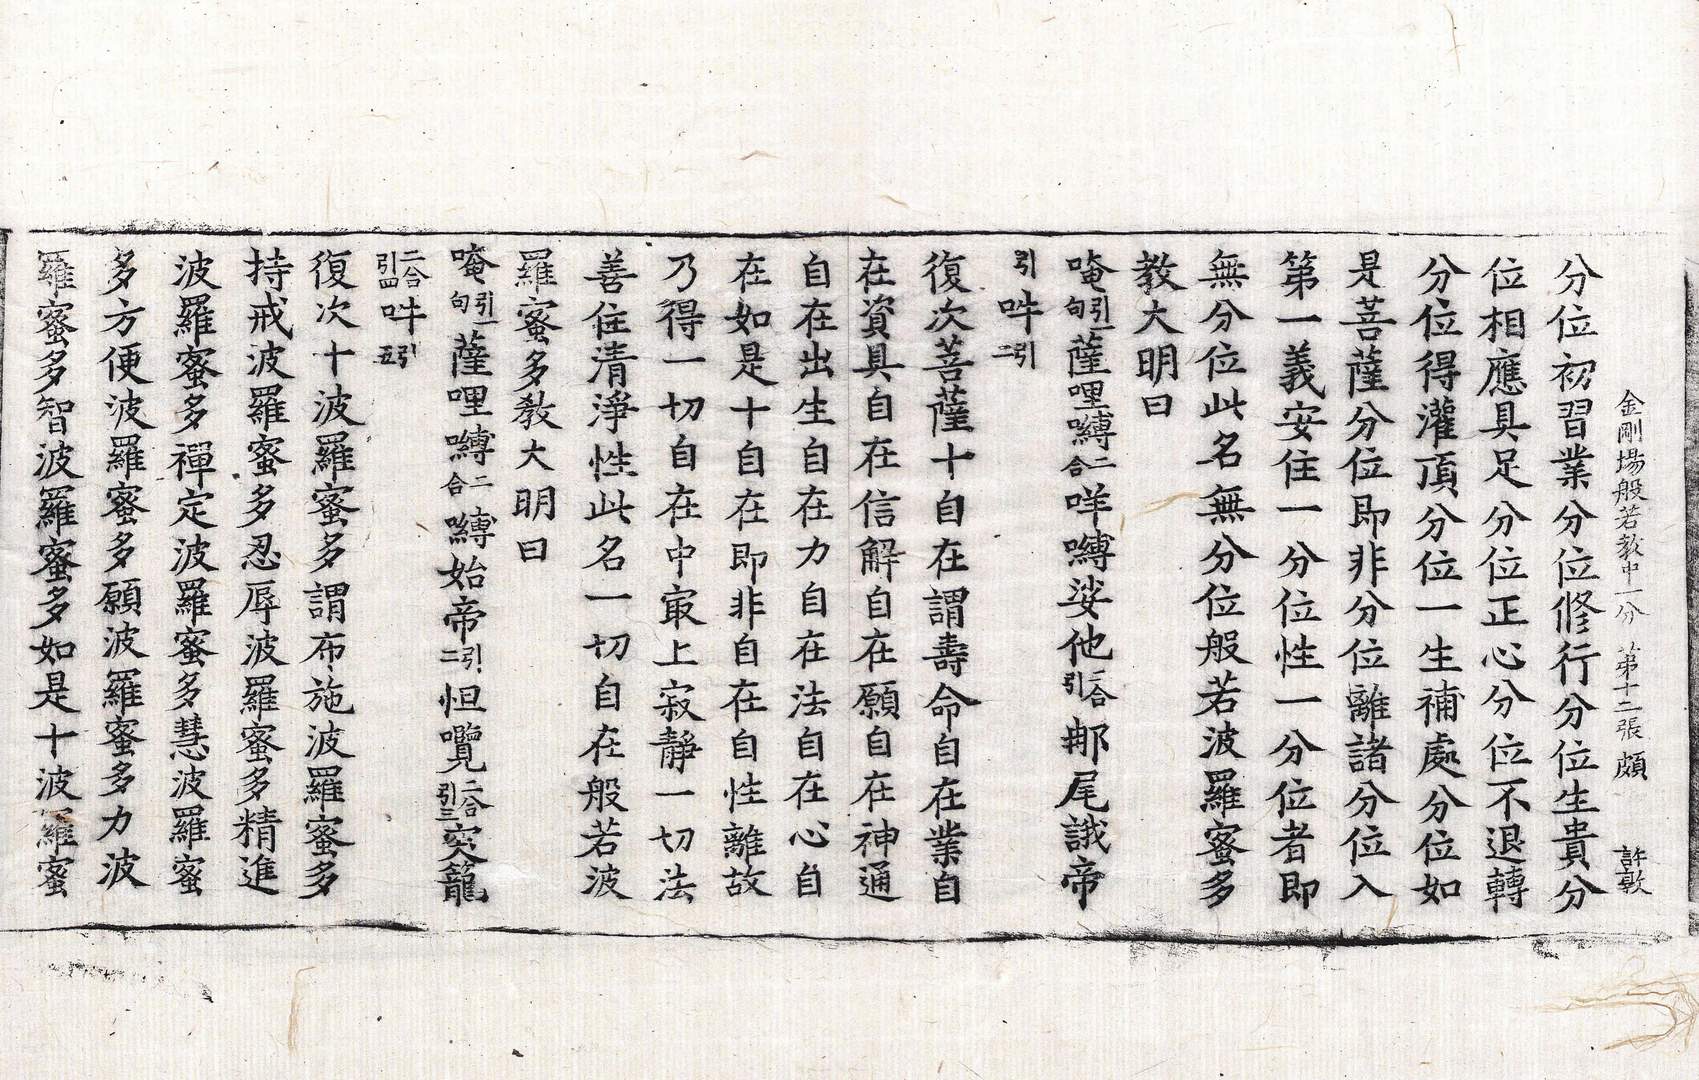 金剛場般若教中一分 第十二張 頗 許敦
分位初習業分位修行分位生貴分
位相應具足分位正心分位不退轉
分位得灌頂分位一生補處分位如
是菩薩分位即非分位離諸分位入
第一義安住一分位性一分位者即
無分位此名無分位般若波羅蜜多
教大明曰
唵引一句薩哩嚩二合咩嚩娑他二合引那尾誐帝
引吽引二
復次菩薩十自在謂壽命自在業自
在資具自在信解自在願自在神通
自在出生自在力自在法自在心自
在如是十自在即非自在自性離故
乃得一切自在中㝡上寂靜一切法
善住清淨性此名一切自在般若波
羅蜜多教大明曰
唵引一句薩哩嚩二合嚩始帝引二怛囕二合引三突籠
二合引四吽引五
復次十波羅蜜多謂布施波羅蜜多
持戒波羅蜜多忍辱波羅蜜多精進
波羅蜜多禪定波羅蜜多慧波羅蜜
多方便波羅蜜多願波羅蜜多力波
羅蜜多智波羅蜜多如是十波羅蜜